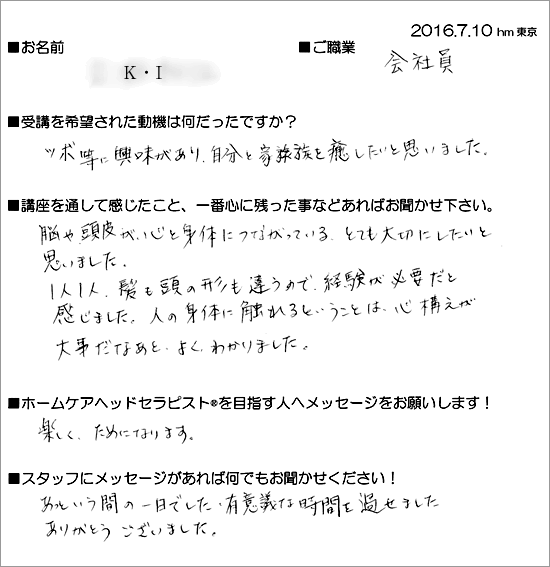 2016.7.10 hm東京
■お名前 ■ご職業
K・I 会社員
■受講を希望された動機は何だったですか？
ツボ等に興味があり、自分と家族を癒したいと思いました。
■講座を通して感じたこと、一番心に残った事などあればお聞かせ下さい。
脳や、頭皮が、心と身体につながっている、とても大切にしたいと
思いました。
1人1人、髪も頭の形も違うので、経験が必要だと
感じました。人の身体に触れるということは、心構えが
大事だなあと、よく、わかりました。
■ホームケアヘッドセラピスト®を目指す人へメッセージをお願いします！
楽しく、ためになります。
■スタッフにメッセージがあれば何でもお聞かせください！
あっという間の一日でした、有意義な時間を過せました
ありがとうございました。